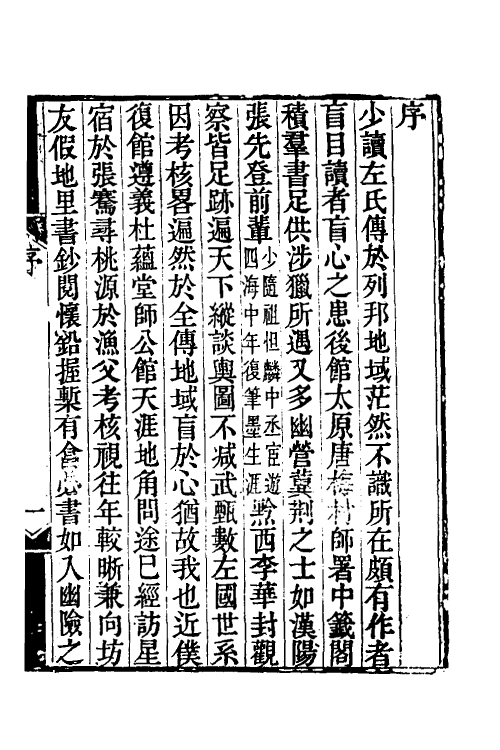 序
少讀左氏傳於列邦地域茫然不識所在頗有作者
盲目讀者盲心之患後館太原唐梅村師署中籤閣
積羣書足供涉獵所遇又多幽營冀荆之士如漢陽
張先登前輩少隨祖怛麟中丞宦遊四海中年復筆墨生涯黔西李華封觀
察皆足跡遍天下縱談輿圖不减武甄數左國世系
因考核畧遍然於全傳地域盲於心猶故我也近僕
復館遵義杜蘊堂師公館天涯地角問途已經訪星
宿於張騫尋桃源於漁父考核視往年較晰兼向坊
友假地里書鈔閱懷鉛握槧有會書如入幽險之
序
一